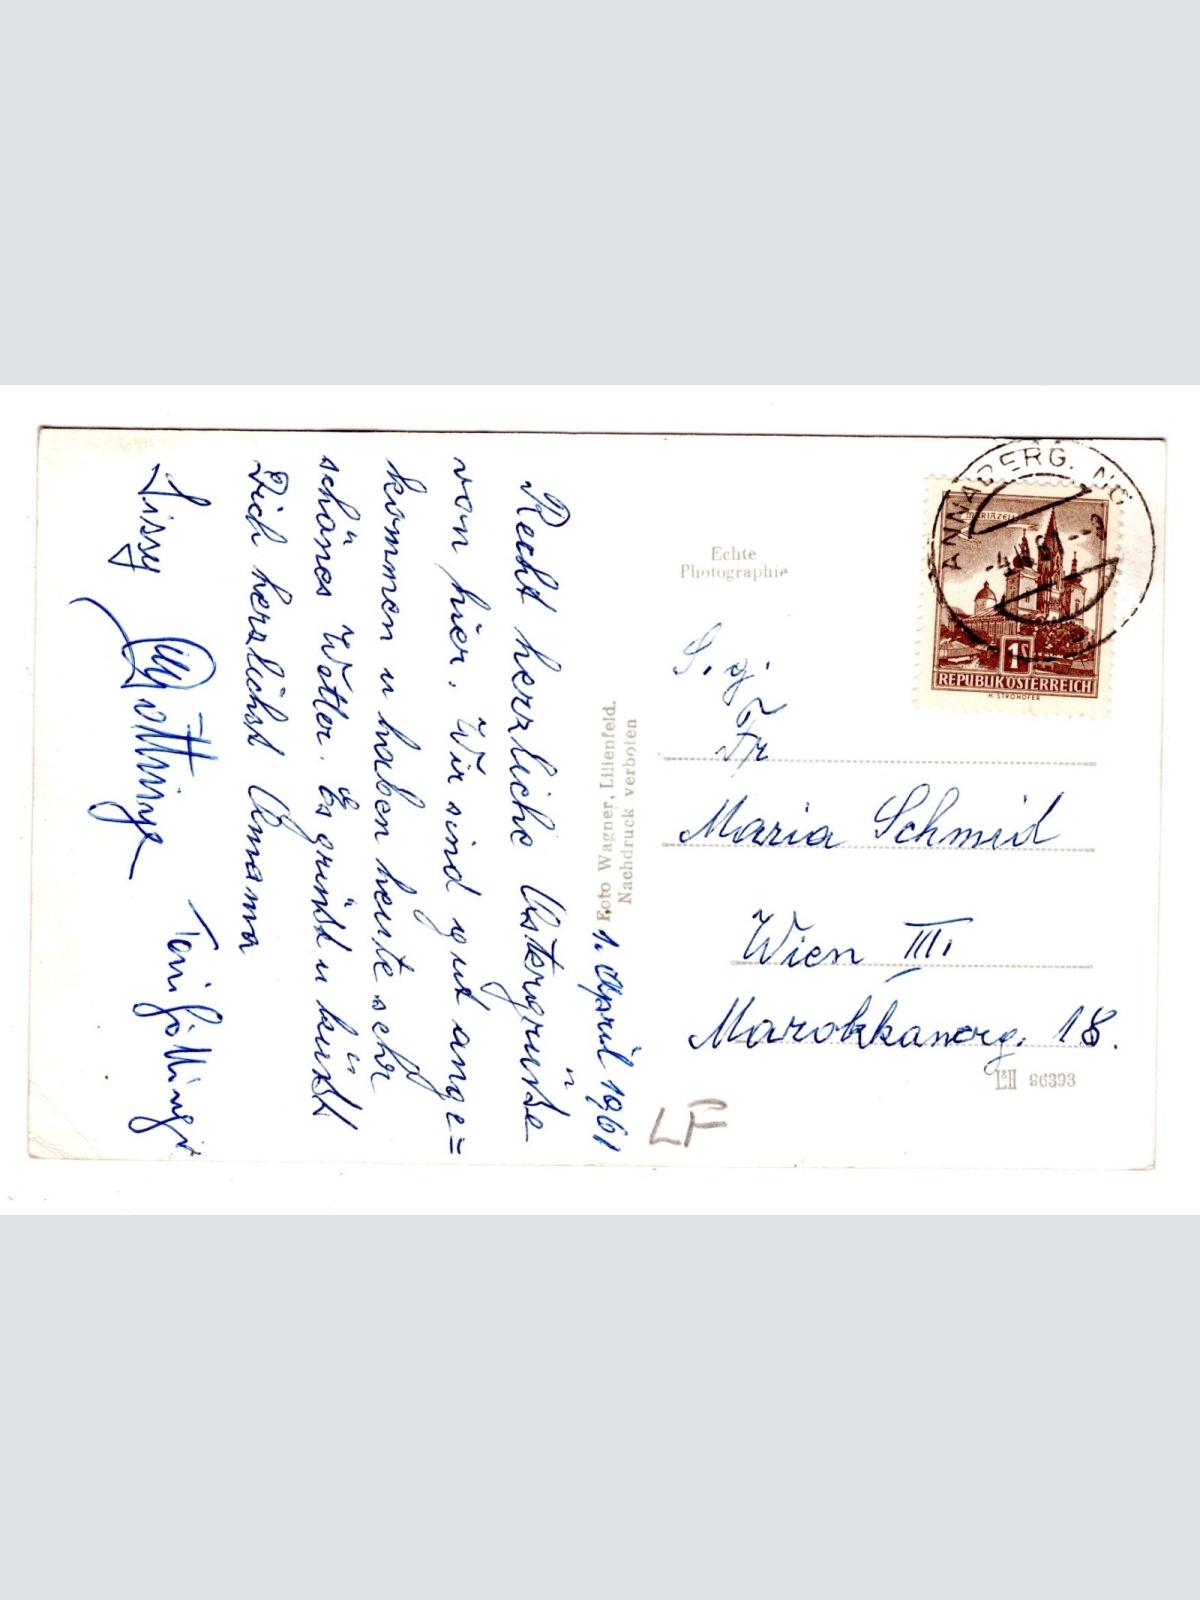 1. April 1961
Recht herzliche Ostergrüße
von hier. Wir sind gut ange=
kommen u haben heute sehr
schönes Wetter. Es grüßt u küßt
Dich herzlichst Omama
Lissy
Toni
Echte
Photographie
Foto Wagner, Lilienfeld.
Nachdruck verboten
ANNABERG, NÖ
MARIAZELL
1S
REPUBLIK ÖSTERREICH
H. STROHOFER
S. g.
Fr
Maria Schmid
Wien III.
Marokkanerg. 18.
L&H 96393
LF